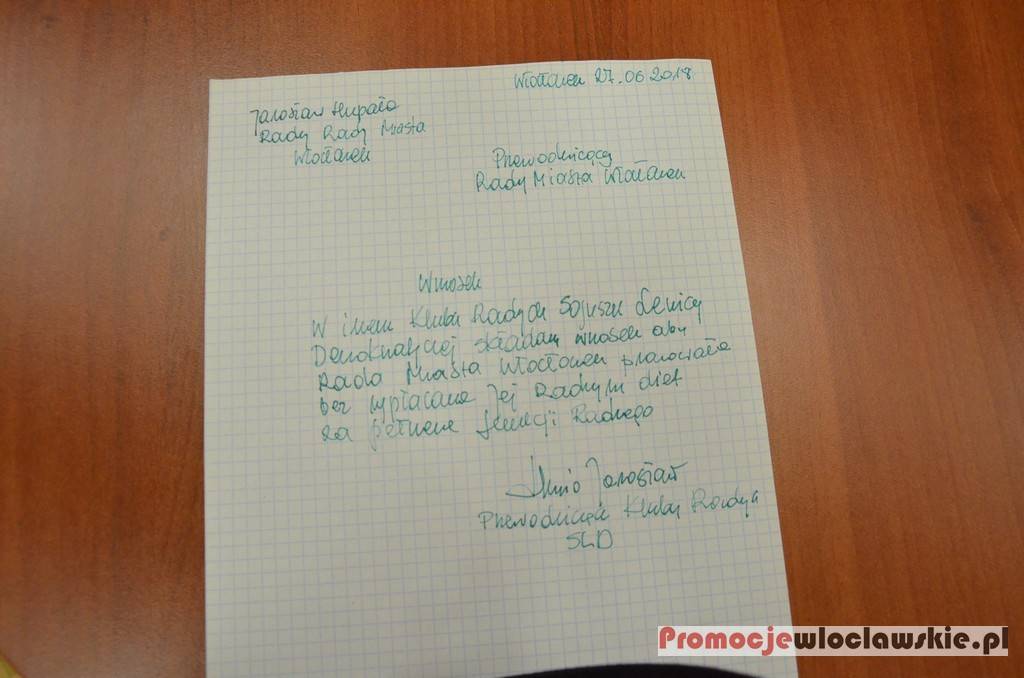 Włocławek 27.06.2018
Jarosław Hupało
Radny Rady Miasta
Włocławek
Przewodniczący
Rady Miasta Włocławek
Wniosek
W imieniu Klubu Radnych Sojuszu Lewicy
Demokratycznej składam wniosek aby
Rada Miasta Włocławek pracowała
bez wypłacania Jej Radnym diet
za pełnienie funkcji Radnego
Jarosław
Przewodniczący Klubu Radnych
SLD
Promocjewloclawskie.pl